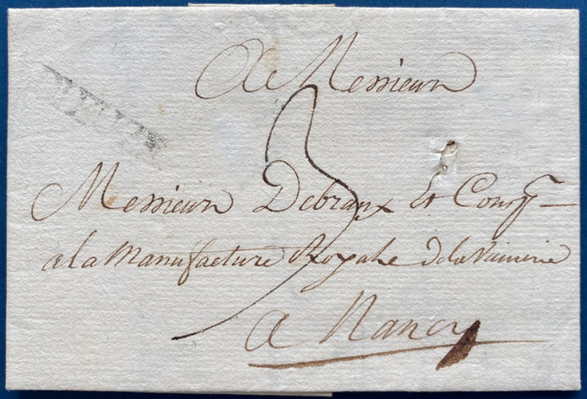 A Messieurs
Messieurs Debraux Et Comp
a la Manufacture Royale
a Nancy
3